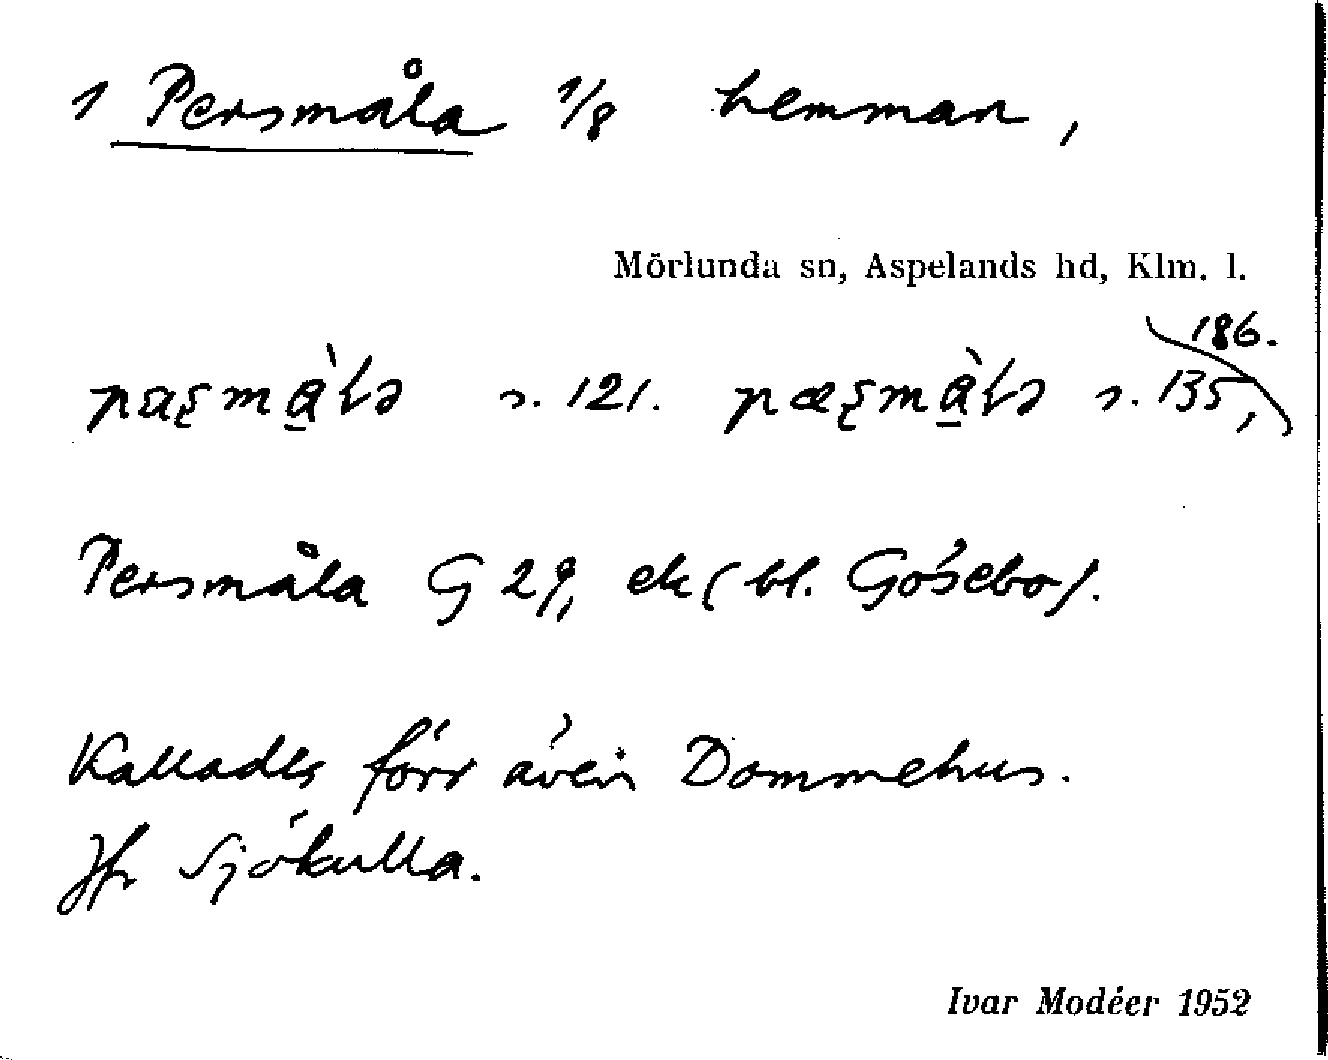 1 Persmåla 1/8 hemman,
Mörlunda sn, Aspelands hd, Klm. l.
186.
s. 121. s. 135,
Persmåla G 29, ek (bl. Gösebo).
Kallades förr även Dommehus.
Jfr Sjökulla.
Ivar Modéer 1952